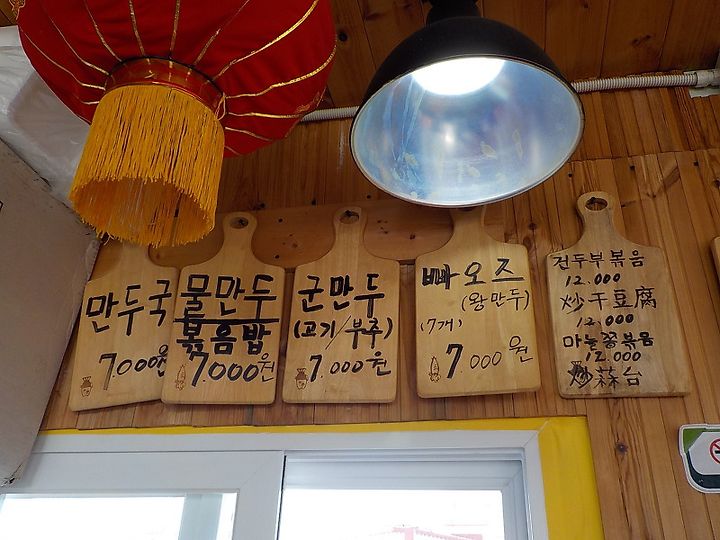 만두국
7.000원
물만두
볶음밥
7.000원
군만두
(고기/부추)
7.000원
빠오즈
(왕만두)
(7개)
7000원
건두부볶음
12.000
炒干豆腐
12.000
마늘쫑볶음
12.000
炒蒜台